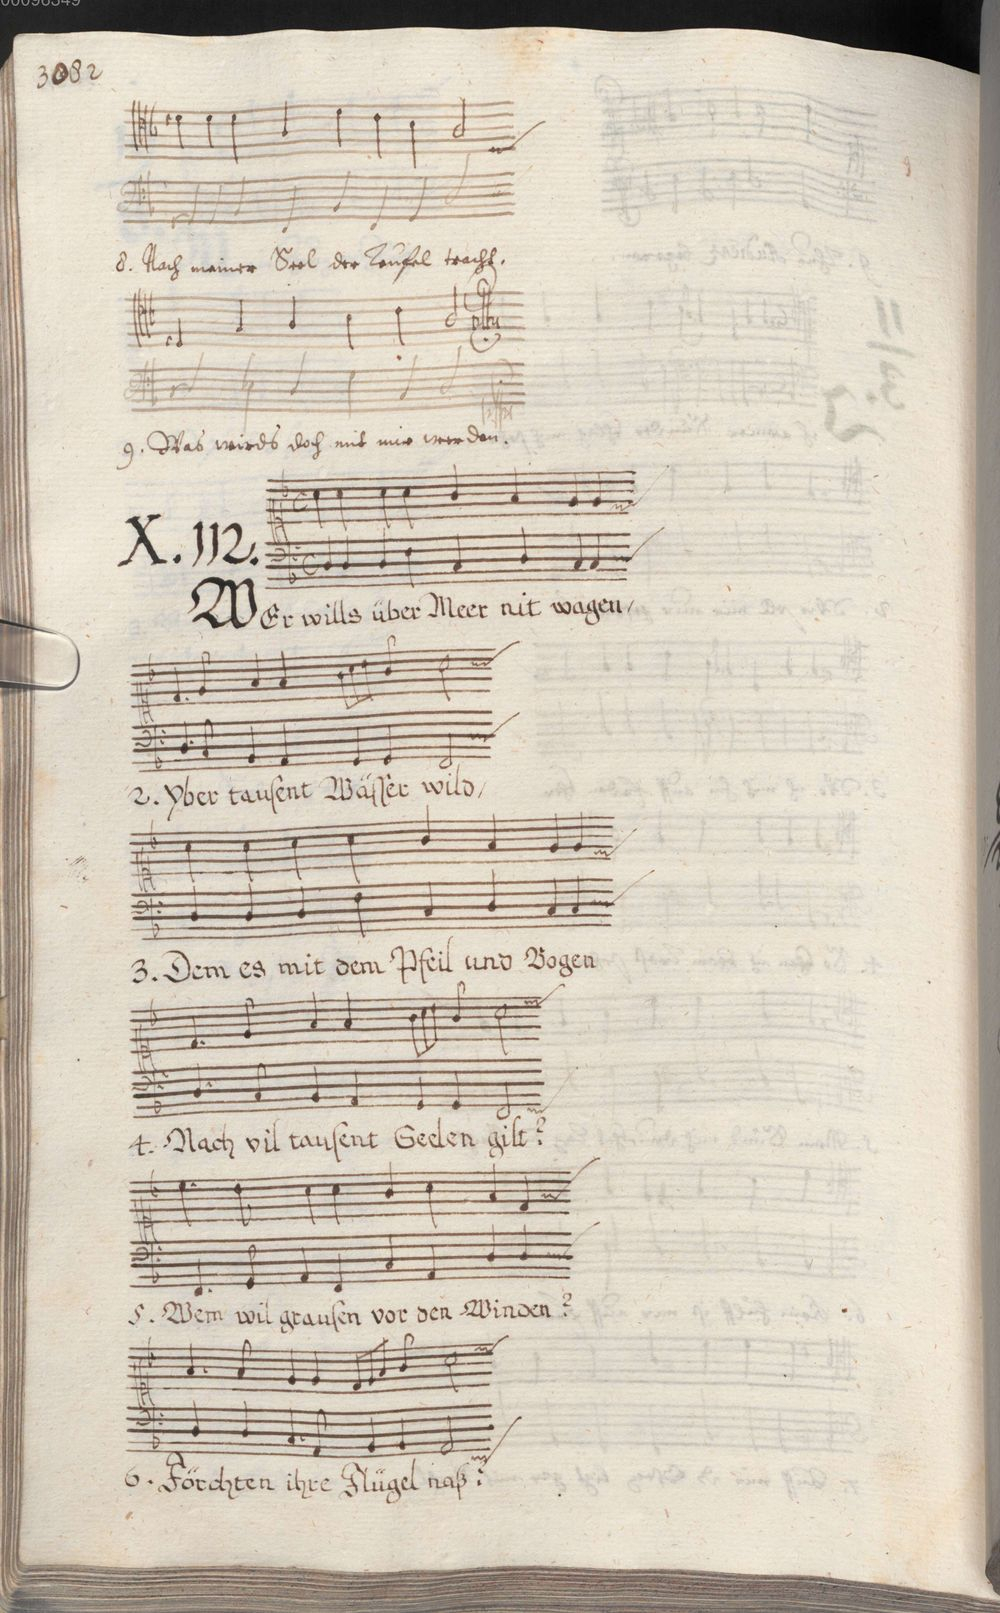 00096349
3082
8. Nach meiner Seel der Teüfel tracht.
9. Was wirds doch mit mir werden.
X. 112.
WEr wills über Meer nit wagen/
2. Yber tausent Wässer wild/
3. Dem es mit dem Pfeil und Bogen
4. Nach vil tausent Seelen gilt?
5. Wem wil grausen vor den Winden?
6. Förchten ihre Flügel naß?